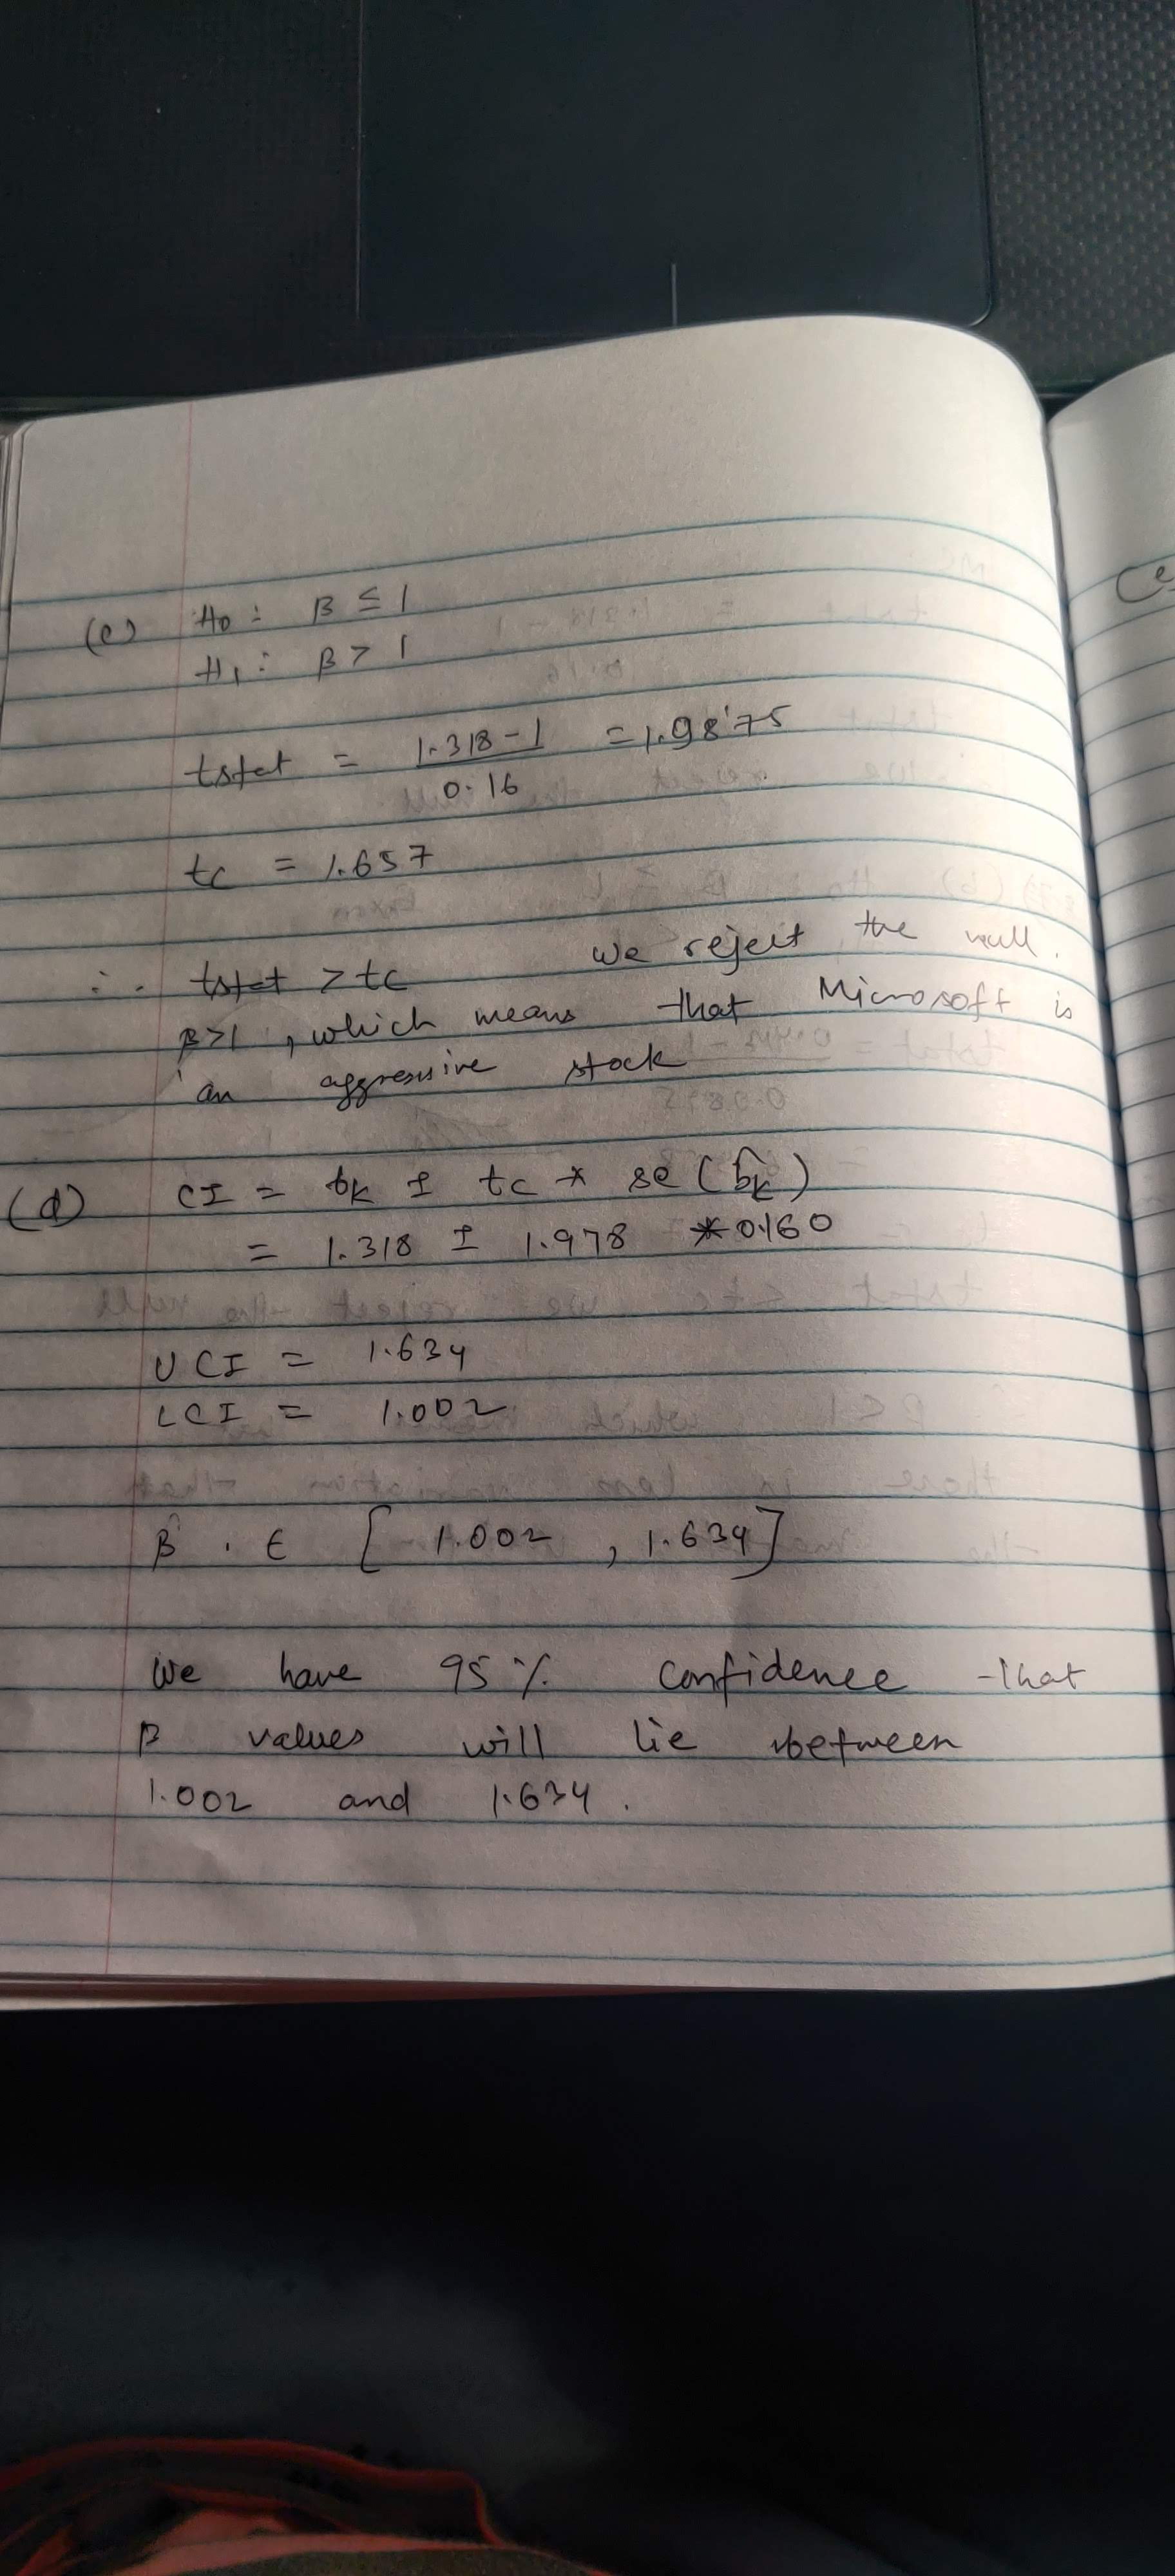 (c) H0 : β ≤ 1
H1 : β > 1
tstat = 1.318 - 1 / 0.16 = 1.9875
tc = 1.657
∴ tstat > tc we reject the null.
β>1 , which means that Microsoft is
an aggressive stock
(d) CI = bk ± tc * se (b̂k)
= 1.318 ± 1.978 * 0.160
UCI = 1.634
LCI = 1.002
β . ∈ [ 1.002 , 1.634 ]
We have 95 % confidence that
β values will lie between
1.002 and 1.634 .